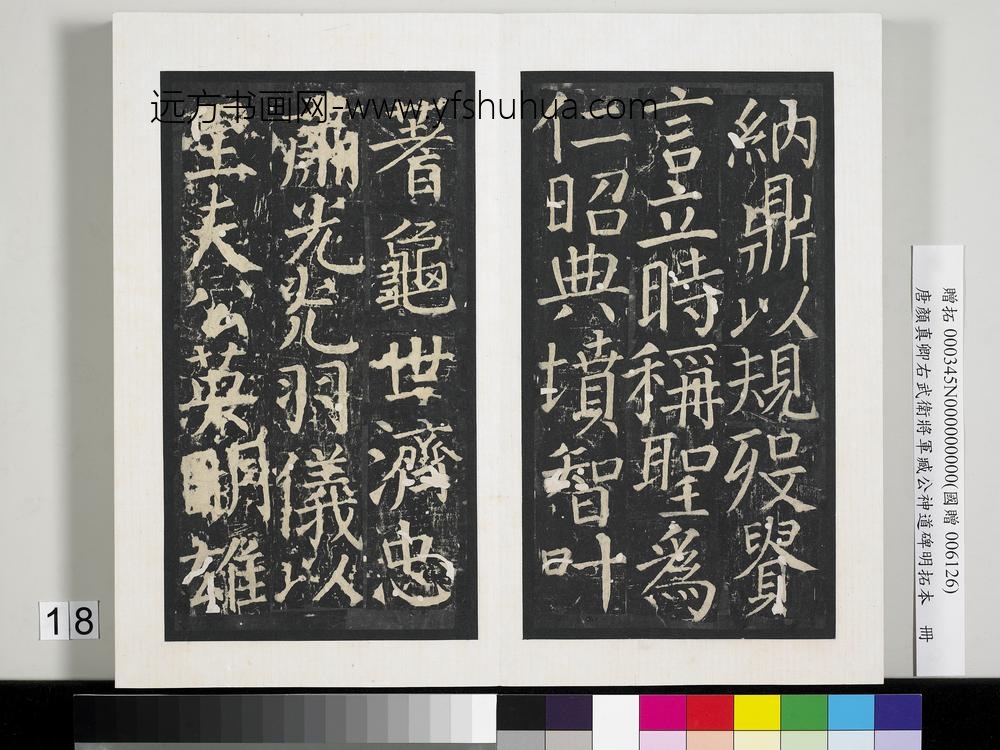 远方书画网-www.yfshuhua.com
納鼎以規歿貴
言立時稱聖爲
仁昭典墳智叶
蓍龜世濟忠
肅光光羽儀以
至夫公英明雄
贈拓 000345N000000000(國贈 006126)
唐顏真卿右武衛將軍臧公神道碑明拓本 冊
18